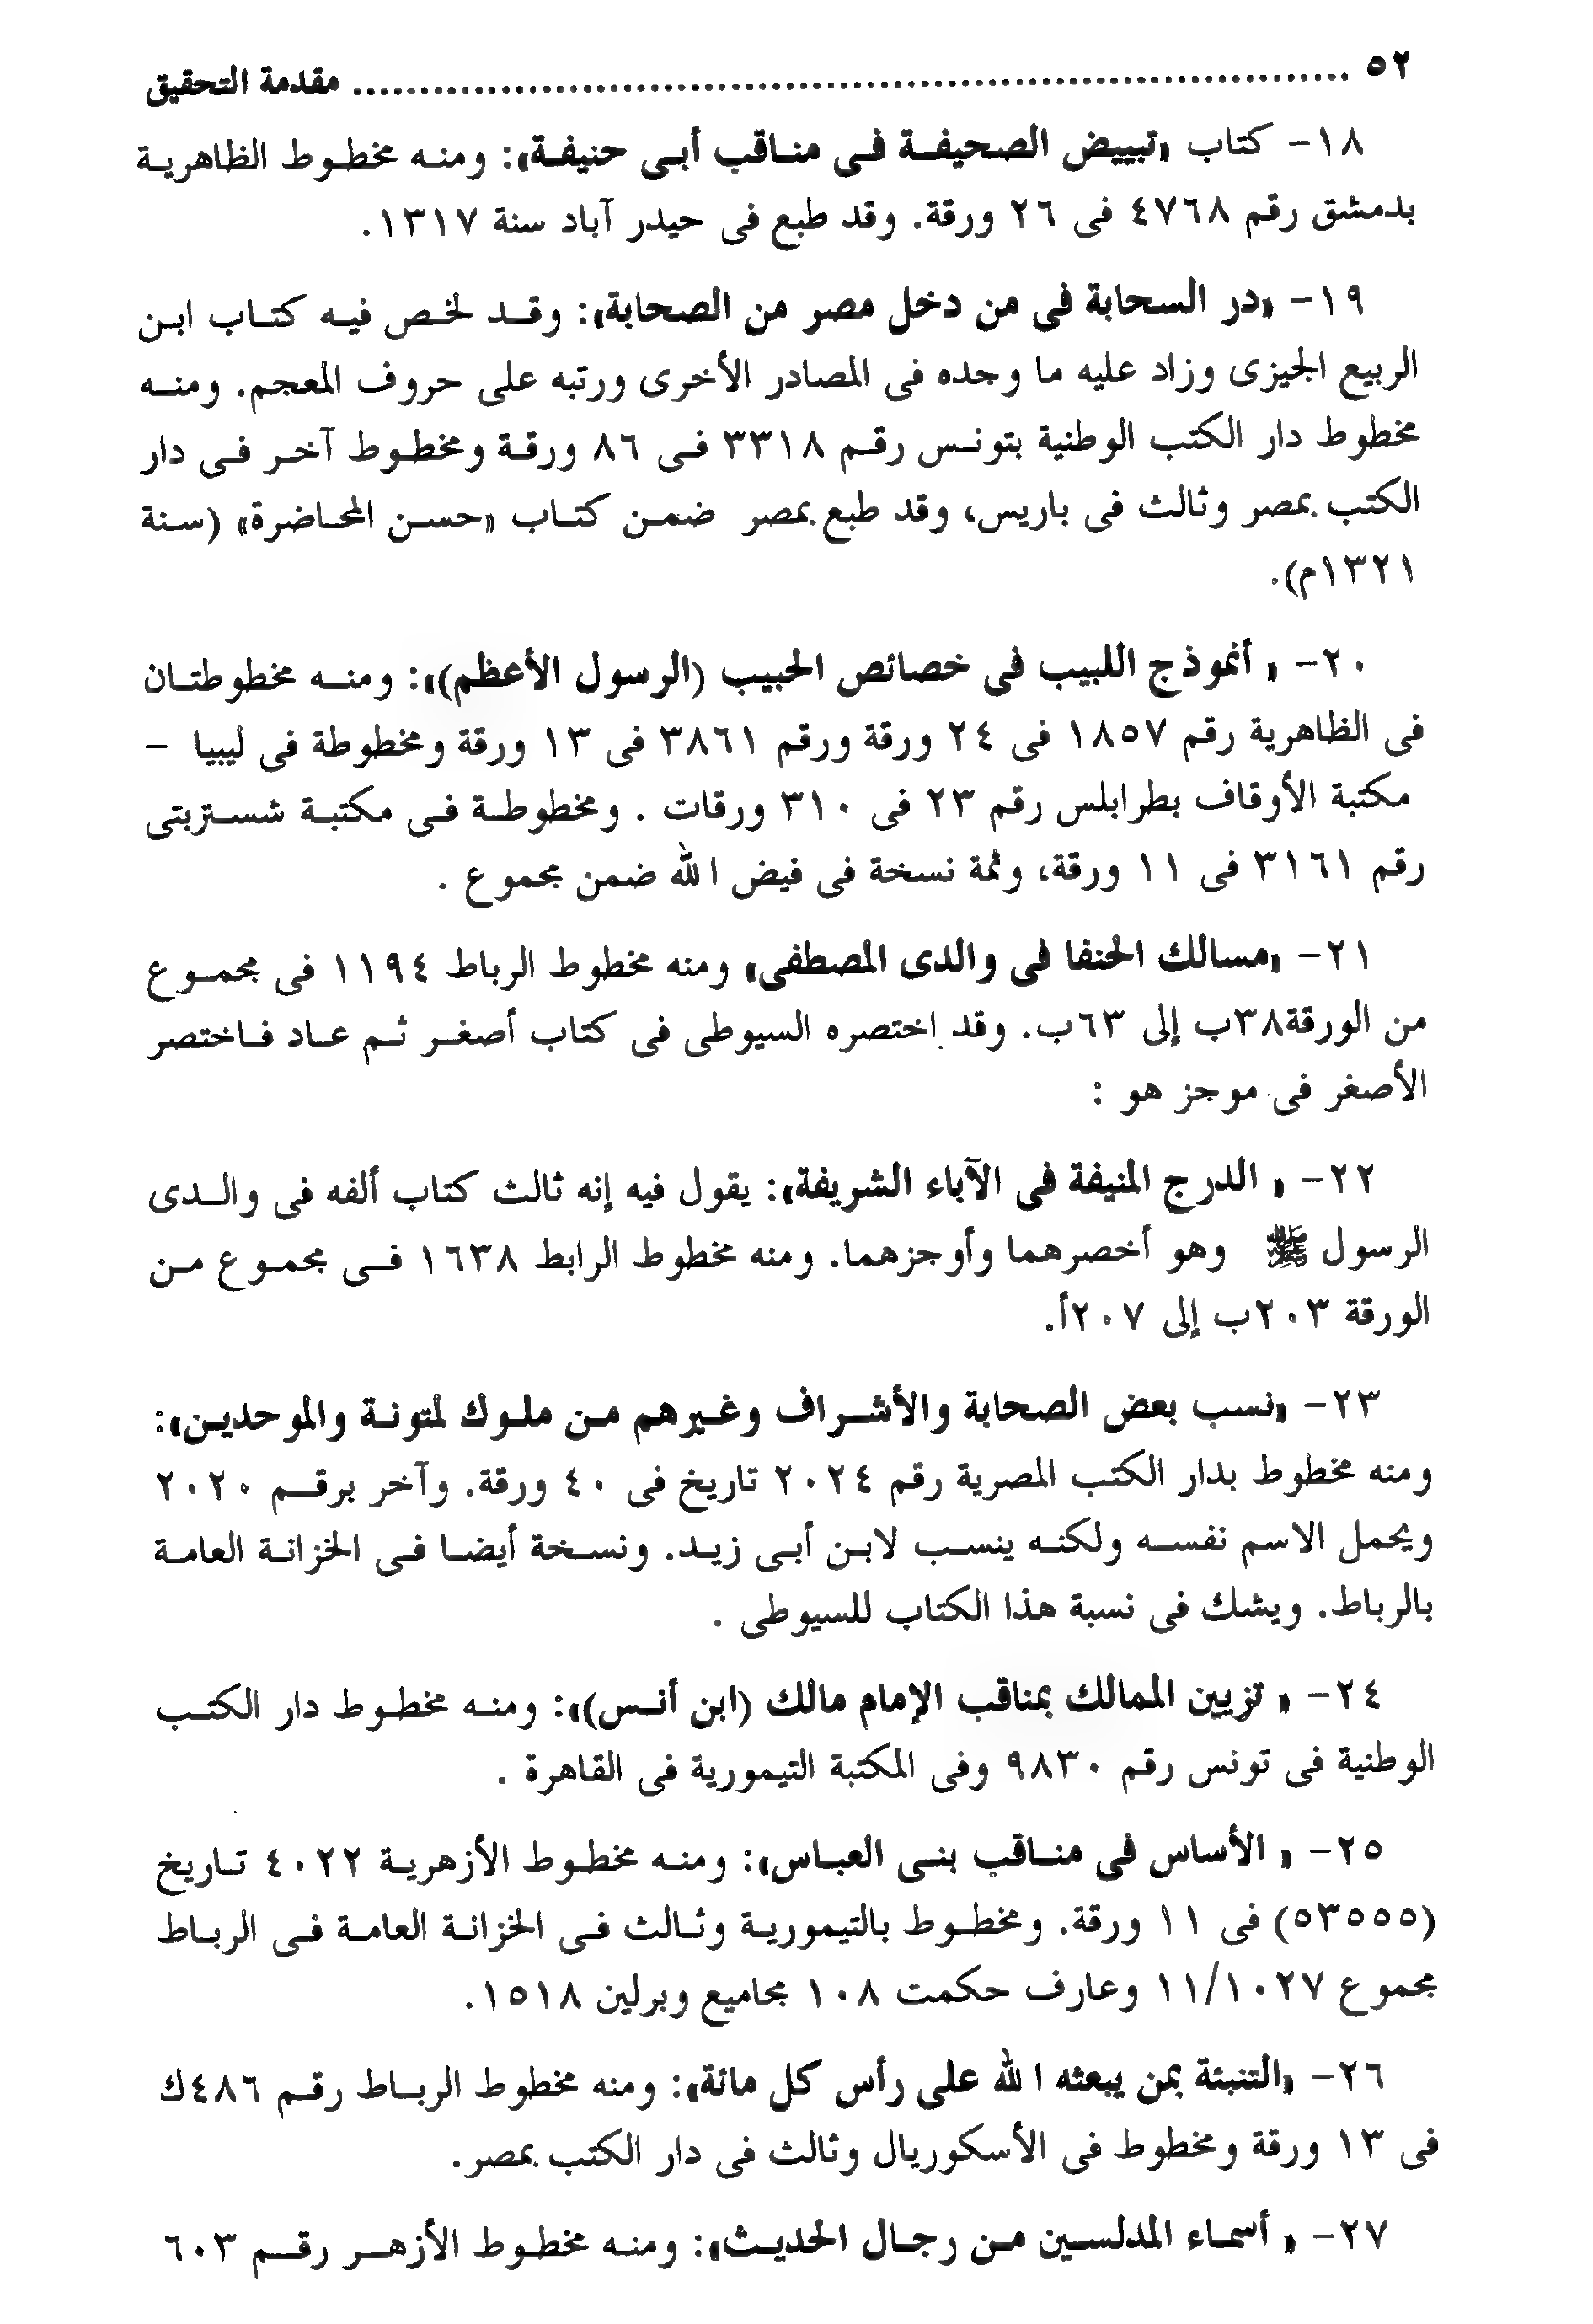 ٥٢ ........................................................................ مقدمة التحقيق
١٨- كتاب «تبييض الصحيفة فى مناقب أبى حنيفة»: ومنه مخطوط الظاهرية
بدمشق رقم ٤٧٦٨ فى ٢٦ ورقة. وقد طبع فى حيدر آباد سنة ١٣١٧.
١٩- «در السحابة فى من دخل مصر من الصحابة»: وقد لخص فيه كتاب ابن
الربيع الجيزى وزاد عليه ما وجده فى المصادر الأخرى ورتبه على حروف المعجم. ومنه
مخطوط دار الكتب الوطنية بتونس رقم ٣٣١٨ فى ٨٦ ورقة ومخطوط آخر فى دار
الكتب بمصر وثالث فى باريس، وقد طبع بمصر ضمن كتاب «حسن المحاضرة» (سنة
١٣٢١م).
٢٠- « أنموذج اللبيب فى خصائص الحبيب (الرسول الأعظم)»: ومنه مخطوطتان
فى الظاهرية رقم ١٨٥٧ فى ٢٤ ورقة ورقم ٣٨٦١ فى ١٣ ورقة ومخطوطة فى ليبيا -
مكتبة الأوقاف بطرابلس رقم ٢٣ فى ٣١٠ ورقات . ومخطوطة فى مكتبة شستربتى
رقم ٣١٦١ فى ١١ ورقة، وثمة نسخة فى فيض الله ضمن مجموع .
٢١- «مسالك الحنفا فى والدى المصطفى» ومنه مخطوط الرباط ١١٩٤ فى مجموع
من الورقة٣٨ب إلى ٦٣ب. وقد اختصره السيوطى فى كتاب أصغر ثم عاد فاختصر
الأصغر فى موجز هو :
٢٢- « الدرج المنيفة فى الآباء الشريفة»: يقول فيه إنه ثالث كتاب ألفه فى والدى
الرسول ﷺ وهو أخصرهما وأوجزهما. ومنه مخطوط الرابط ١٦٣٨ فى مجموع من
الورقة ٢٠٣ب إلى ٢٠٧أ.
٢٣- «نسب بعض الصحابة والأشراف وغيرهم من ملوك لمتونة والموحدين»:
ومنه مخطوط بدار الكتب المصرية رقم ٢٠٢٤ تاريخ فى ٤٠ ورقة. وآخر برقم ٢٠٢٠
ويحمل الاسم نفسه ولكنه ينسب لابن أبى زيد. ونسخة أيضا فى الخزانة العامة
بالرباط. ويشك فى نسبة هذا الكتاب للسيوطى .
٢٤- « تزيين الممالك بمناقب الإمام مالك (ابن أنس)»: ومنه مخطوط دار الكتب
الوطنية فى تونس رقم ٩٨٣٠ وفى المكتبة التيمورية فى القاهرة .
٢٥- « الأساس فى مناقب بنى العباس»: ومنه مخطوط الأزهرية ٤٠٢٢ تاريخ
(٥٣٥٥٥) فى ١١ ورقة. ومخطوط بالتيمورية وثالث فى الخزانة العامة فى الرباط
مجموع ١١/١٠٢٧ وعارف حكمت ١٠٨ مجاميع وبرلين ١٥١٨.
٢٦- «التنبئة بمن يبعثه الله على رأس كل مائة»: ومنه مخطوط الرباط رقم ٤٨٦ك
فى ١٣ ورقة ومخطوط فى الأسكوريال وثالث فى دار الكتب بمصر.
٢٧- « أسماء المدلسين من رجال الحديث»: ومنه مخطوط الأزهر رقم ٦٠٣